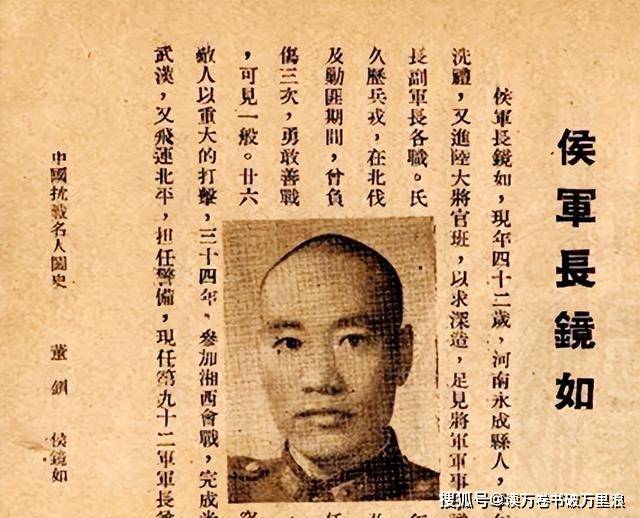 侯軍長鏡如
侯軍長鏡如，現年四十二歲，河南永成縣人，
洗禮，又進陸大將官班，以求深造，足見將軍軍事
長副軍長各職。氏
久歷兵戎，在北伐
及勦匪期間，曾負
傷三次，勇敢善戰
，可見一般。廿六
敵人以重大的打擊，三十四年。參加湘西會戰，完成
武漢，又飛連北平，担任警備，現任第九十二軍軍長
中國抗戰名人圖史
董釗
侯鏡如
搜狐号@读万卷书破万里浪